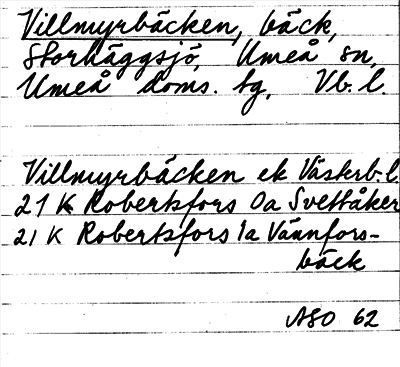 Villmyrbäcken, bäck,
Storhäggsjö, Umeå sn,
Umeå doms. tg, Vb. l.
Villmyrbäcken ek Västerb. l.
21 K Robertsfors 0a Svettåker
21 K Robertsfors 1a Vännfors-
bäck
ASO 62